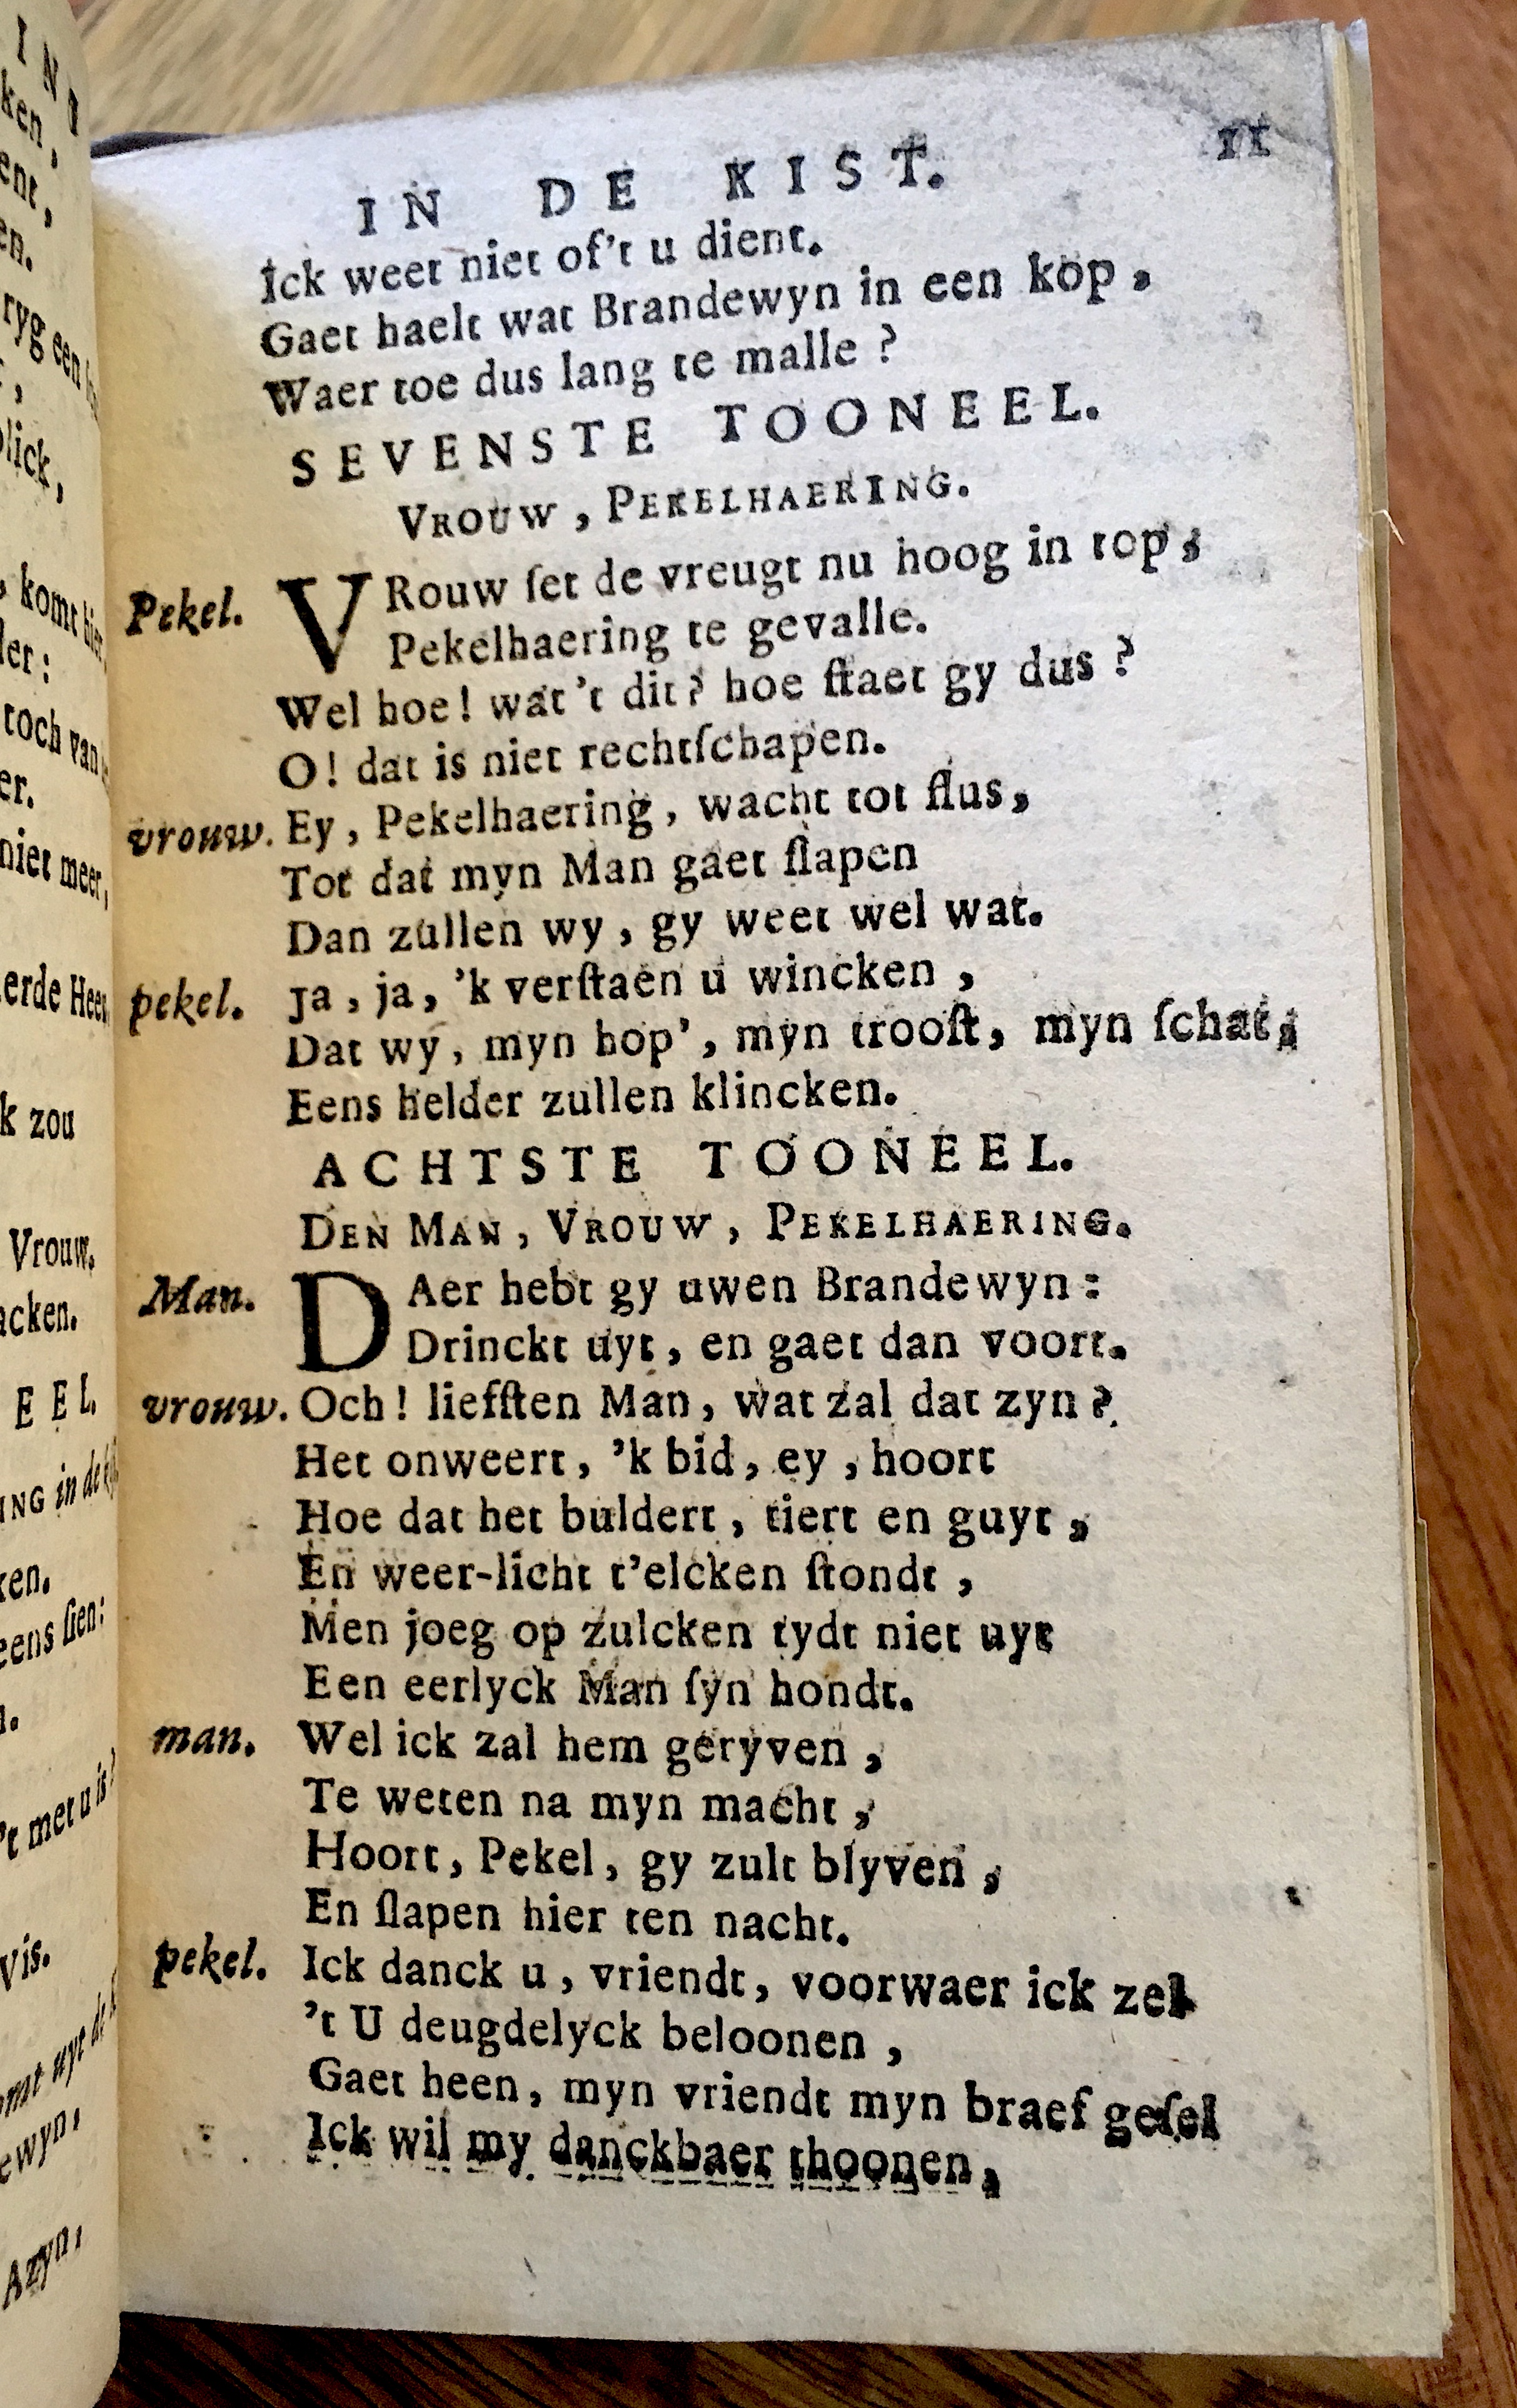 IN DE KIST. 11
Ick weet niet of't u dient.
Gaet haelt wat Brandewyn in een kop,
Waer toe dus lang te malle?
SEVENSTE TOONEEL.
VROUW, PEKELHAERING.
Pekel. VRouw ſet de vreugt nu hoog in top,
Pekelhaering te gevalle.
Wel hoe! wat't dit? hoe ſtaet gy dus?
O! dat is niet rechtſchapen.
vrouw. Ey, Pekelhaering, wacht tot flus,
Tot dat myn Man gaet ſlapen
Dan zullen wy, gy weet wel wat.
pekel. Ja, ja, 'k verſtaen u wincken,
Dat wy, myn hop', myn trooſt, myn ſchat,
Eens helder zullen klincken.
ACHTSTE TOONEEL.
DEN MAN, VROUW, PEKELHAERING.
Man. DAer hebt gy uwen Brandewyn:
Drinckt uyt, en gaet dan voort.
vrouw. Och! liefſten Man, wat zal dat zyn?
Het onweert, 'k bid, ey, hoort
Hoe dat het buldert, tiert en guyt,
En weer-licht t'elcken ſtondt,
Men joeg op zulcken tydt niet uyt
Een eerlyck Man ſyn hondt.
man. Wel ick zal hem geryven,
Te weten na myn macht,
Hoort, Pekel, gy zult blyven,
En ſlapen hier ten nacht.
pekel. Ick danck u, vriendt, voorwaer ick zel
't U deugdelyck beloonen,
Gaet heen, myn vriendt myn braef geſel
Ick wil my danckbaer thoonen,